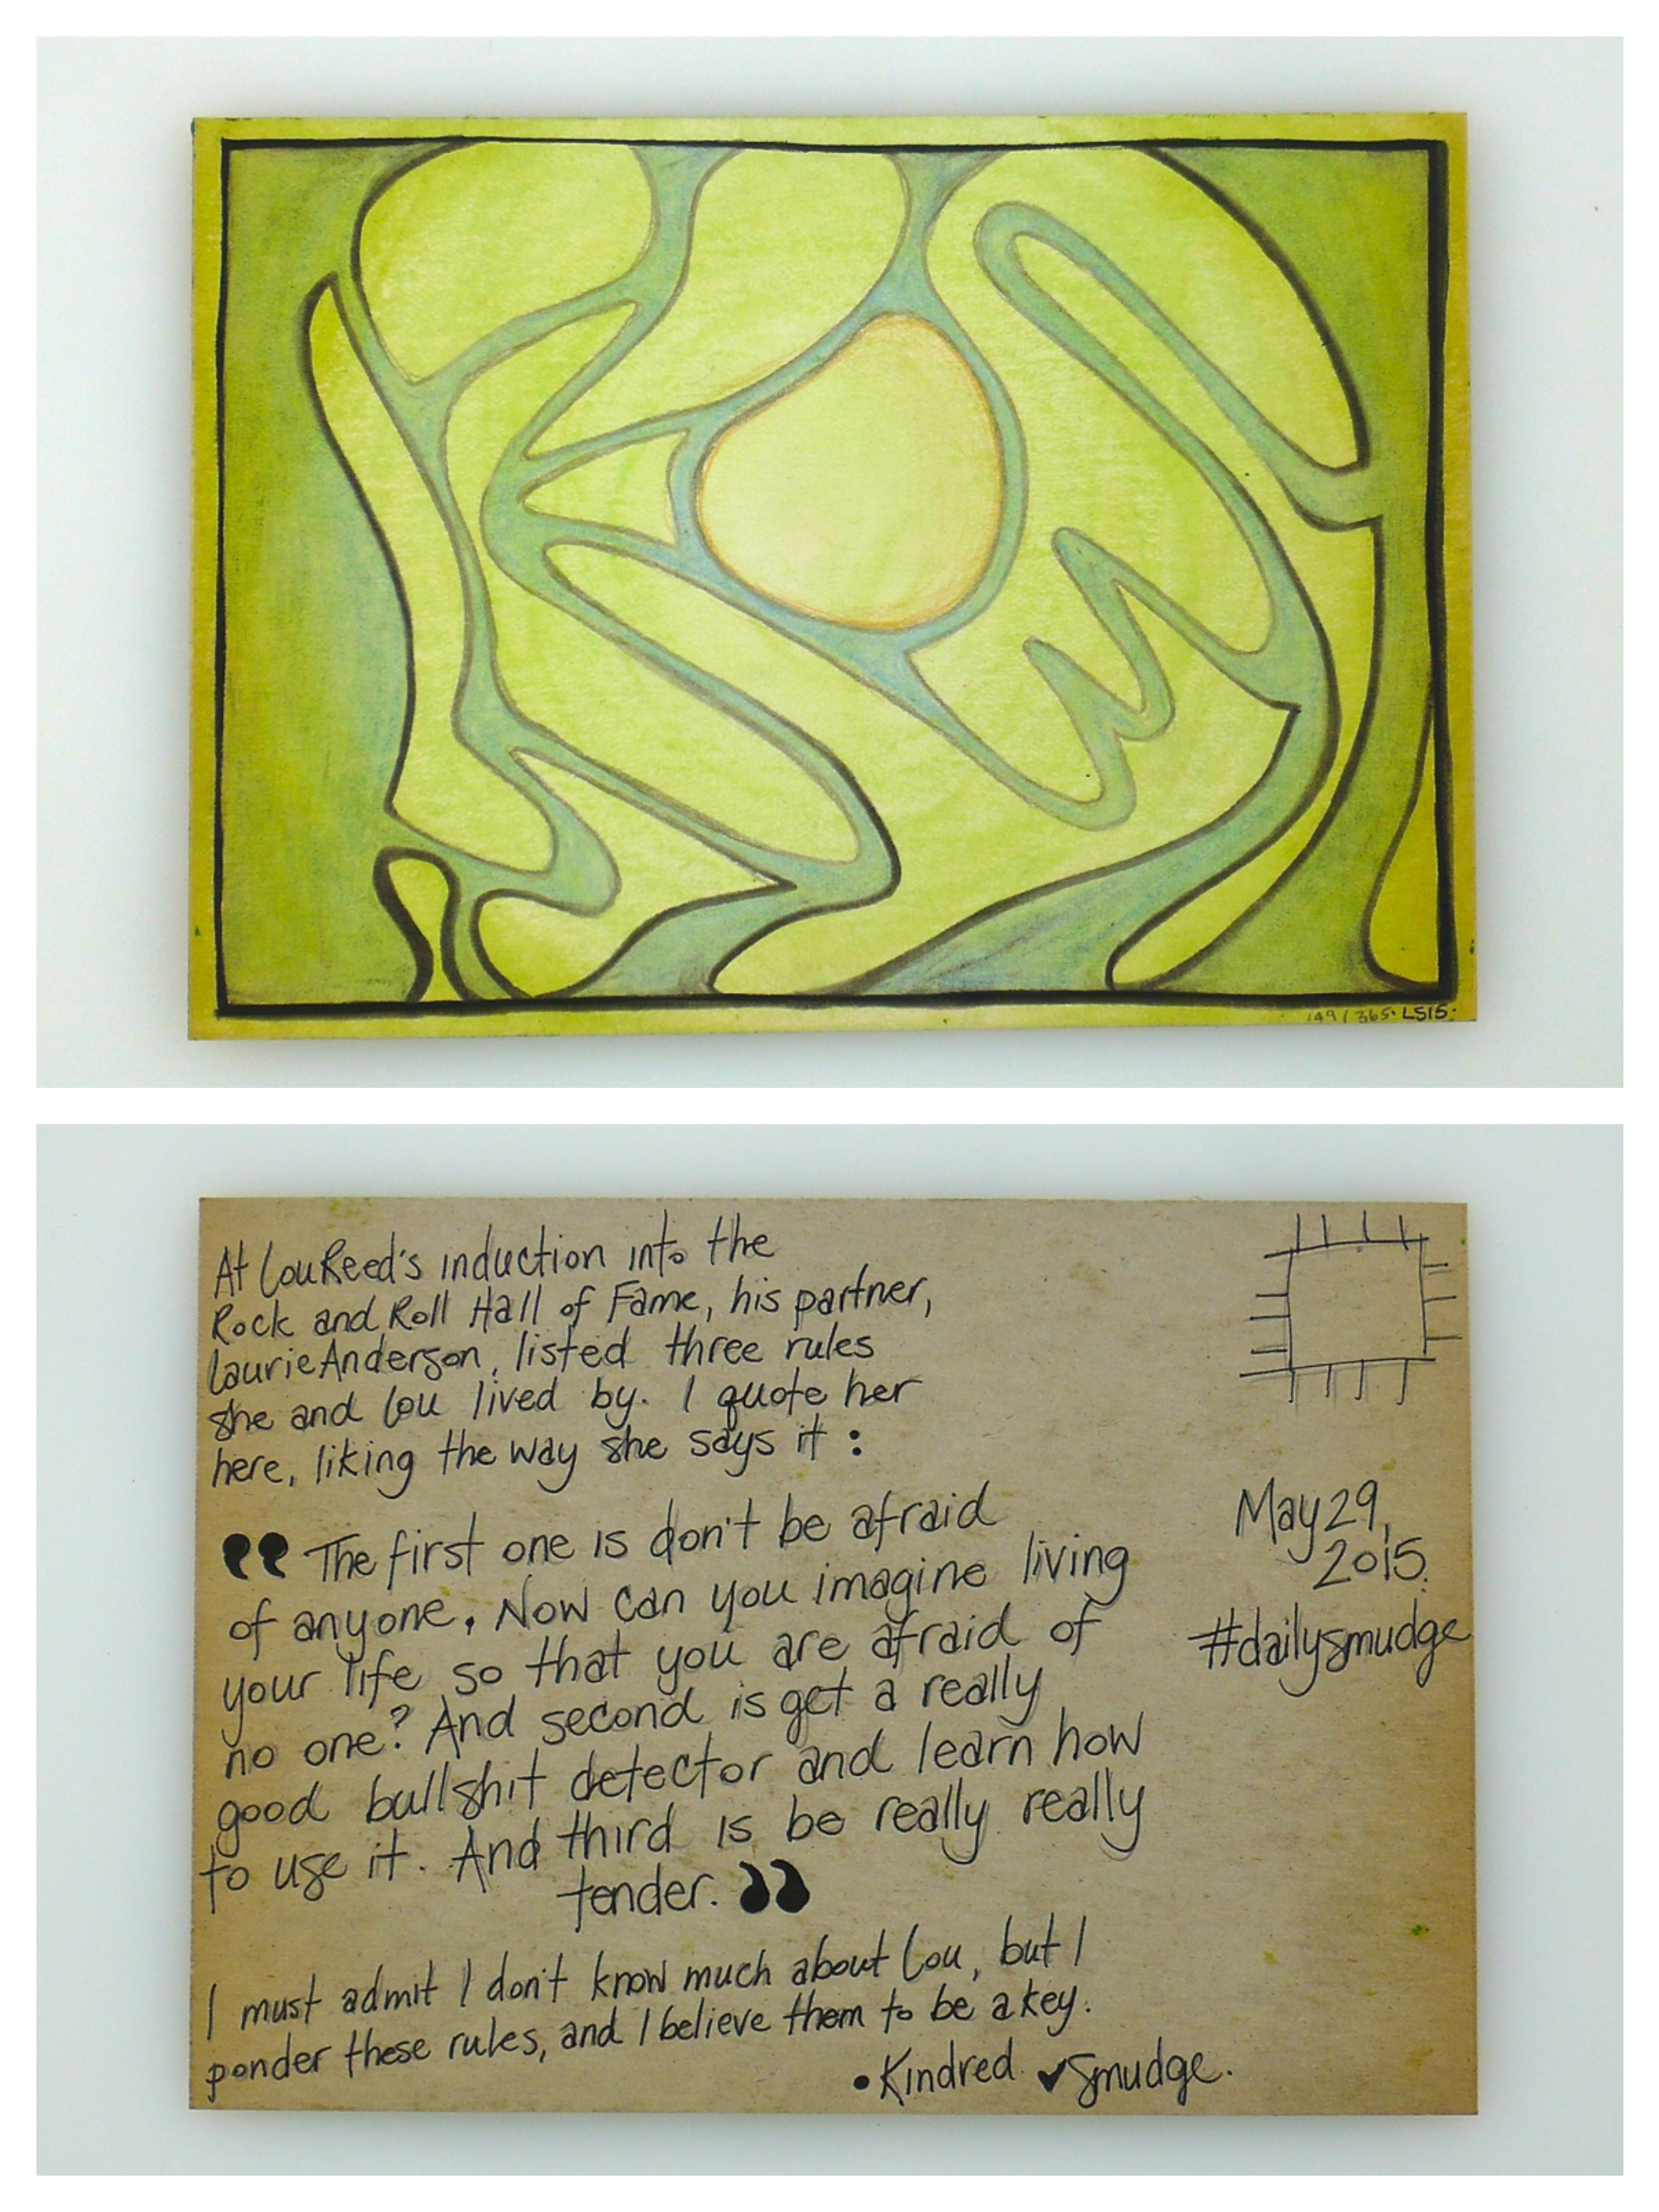 149/365. LS15.
At Lou Reed's induction into the
Rock and Roll Hall of Fame, his partner,
Laurie Anderson, listed three rules
she and Lou lived by. I quote her
here, liking the way she says it:
“The first one is don't be afraid
of anyone. Now can you imagine living
your life so that you are afraid of
no one? And second is get a really
good bullshit detector and learn how
to use it. And third is be really really
tender.”
I must admit I don't know much about Lou, but I
ponder these rules, and I believe them to be a key.
• Kindred ✓Smudge.
May 29,
2015.
#dailysmudge